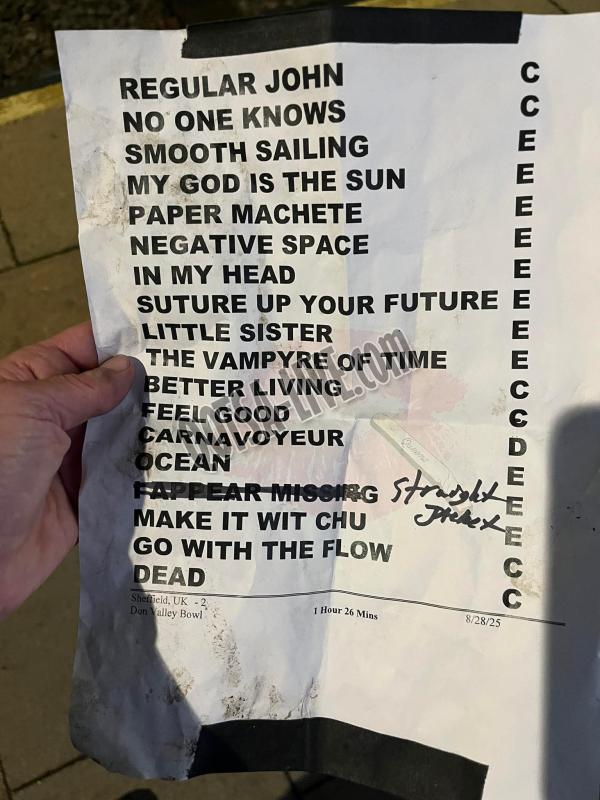 REGULAR JOHN C
NO ONE KNOWS C
SMOOTH SAILING E
MY GOD IS THE SUN E
PAPER MACHETE E
NEGATIVE SPACE E
IN MY HEAD E
SUTURE UP YOUR FUTURE E
LITTLE SISTER E
THE VAMPYRE OF TIME E
BETTER LIVING C
FEEL GOOD C
CARNAVOYEUR D
OCEAN E
I APPEAR MISSING Straight E
Jacket
MAKE IT WIT CHU E
GO WITH THE FLOW C
DEAD C
Sheffield, UK - 2
Don Valley Bowl 1 Hour 26 Mins 8/28/25